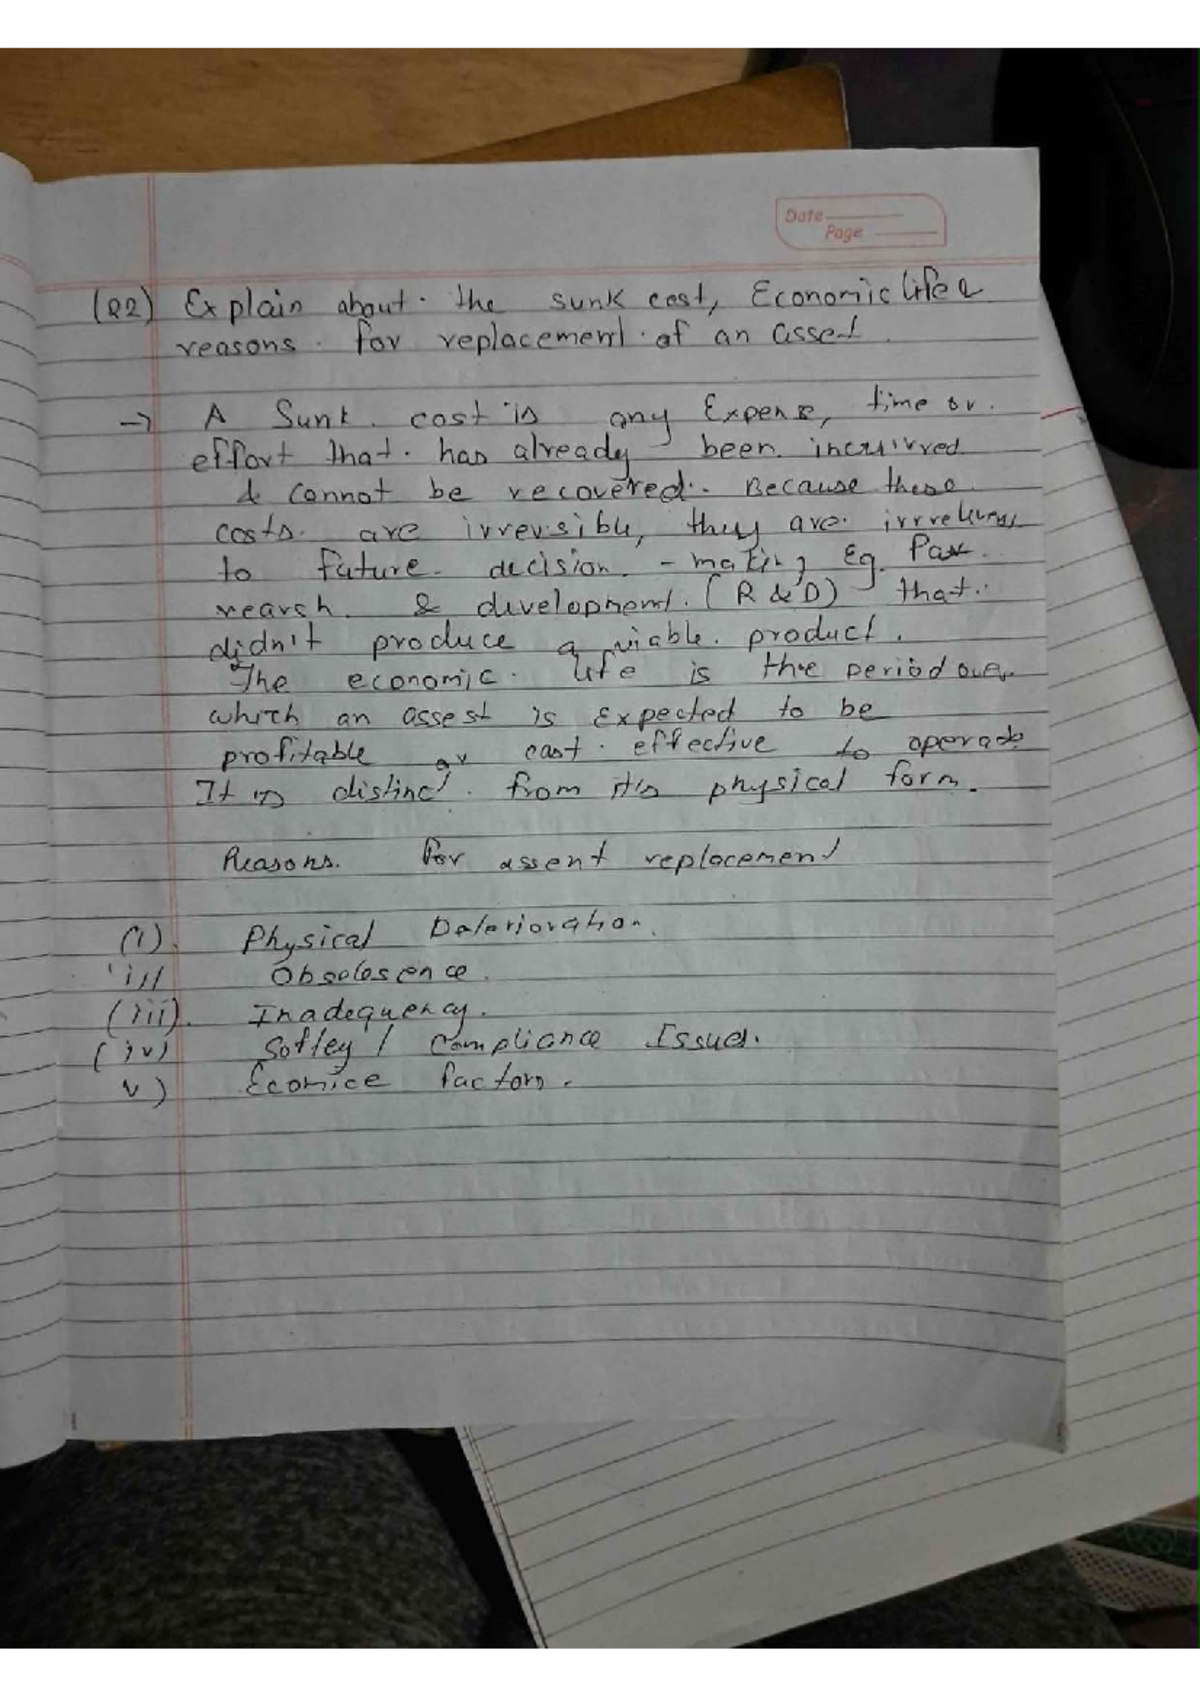 Date
Page
(Q2) Explain about the sunk cost, Economic life &
reasons for replacement of an asset.
→ A Sunk cost is any Expense, time or
effort that has already been incurred
& cannot be recovered. Because these
costs are irreversible, they are
to future decision - making Eg. Past
rearsh & development (R & D) that
didn't produce a viable product.
The economic life is the period over
which an assest is Expected to be
profitable or cost effective to operate
It is distinct from it's physical form.
Reasons for assent replacement
(i) Physical Deterioration.
ii) Obsolosence.
(iii). Inadequency.
(iv) Saftey / Compliance Issues.
v) Ecomice factors.